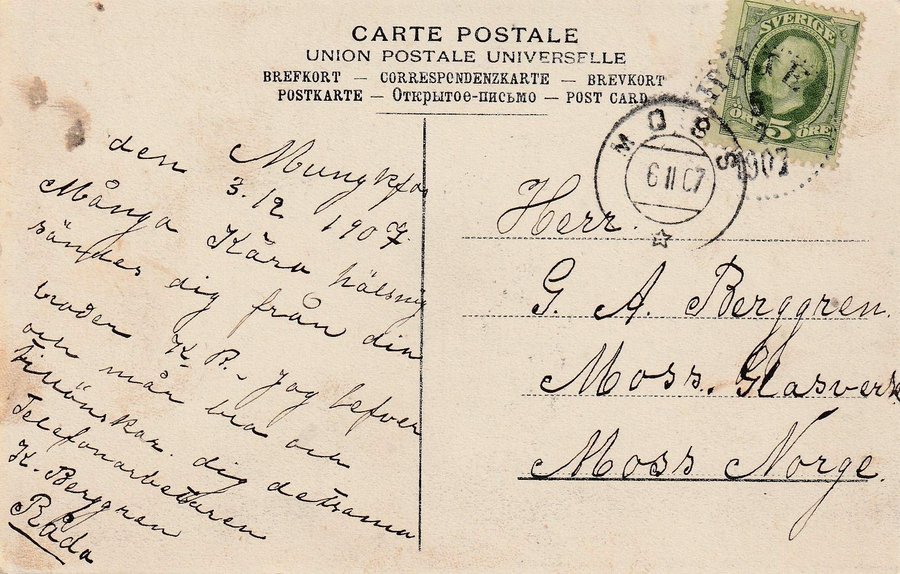 CARTE POSTALE
UNION POSTALE UNIVERSELLE
BREFKORT — CORRESPONDENZKARTE — BREVKORT
POSTKARTE — Открытое-письмо — POST CARD
SVERIGE
5 ÖRE
1907
MOSS
6 II 07
den Mungkfos
3.12 1907.
Många Kära hälsnig
sändes dig från din
broder K. B. jag lefver
och mår bra och
tillönskar dig detsama
Telefonarbetaren
K. Berggren
Råda
Herr.
G. A. Berggren.
Moss. Glasverk
Moss Norge.